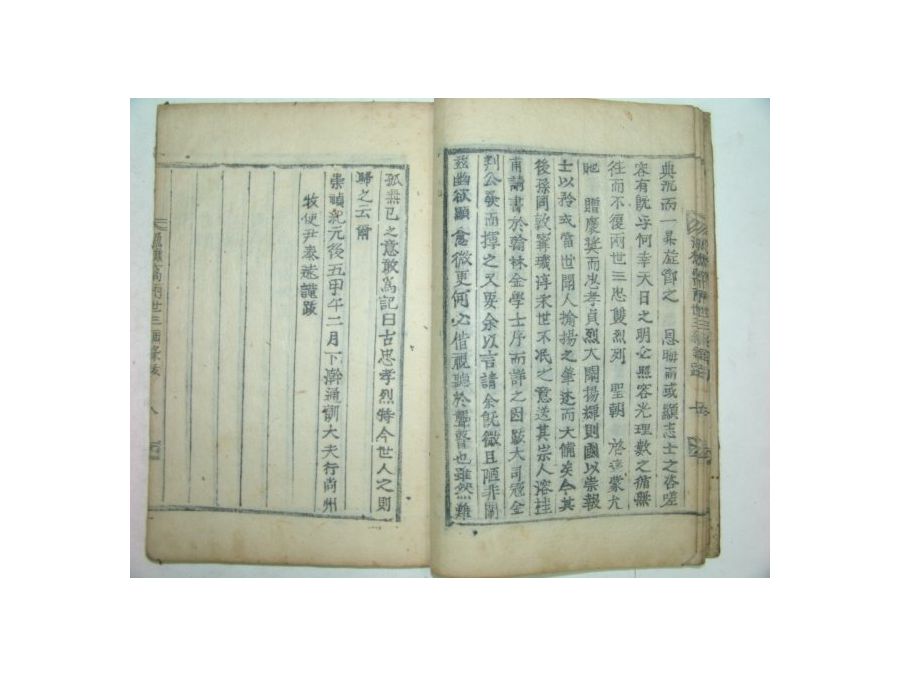 典況而一㒗虛鄧之 恩晦而或顯志士之咨嗟
容有旣乎何幸天日之明仝照容光理數之循無
往而不復兩世三忠雙烈列 聖朝 啓 蒙允
貤 贈慶奬而忠孝貞烈大闡揚輝則國以崇報
士以矜式當世聞人揄揚之筆述而大備矣今其
後孫同敦寧璣淳永世不泯之意送其宗人溶挂
甫請書於翰林金學士序而詳之因跋大司冠金
判公發而揮之又要余以言請余旣微且陋非闡
玆幽欲顯 微更何必借視聽於聾瞽也雖然難
孤 已之意敢爲記曰古忠孝烈特今世人之則
歸之云爾
崇禎紀元後五甲午二月下澣通訓大夫行尙州
牧使尹泰 謹跋